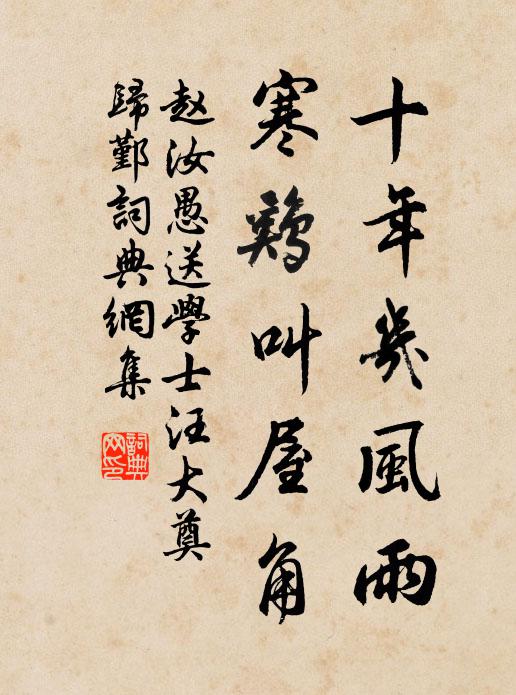 十年幾風雨
寒鷄叫屋角
赵汝愚送學士汪大奠
歸鄞詞典網集
詞典网印